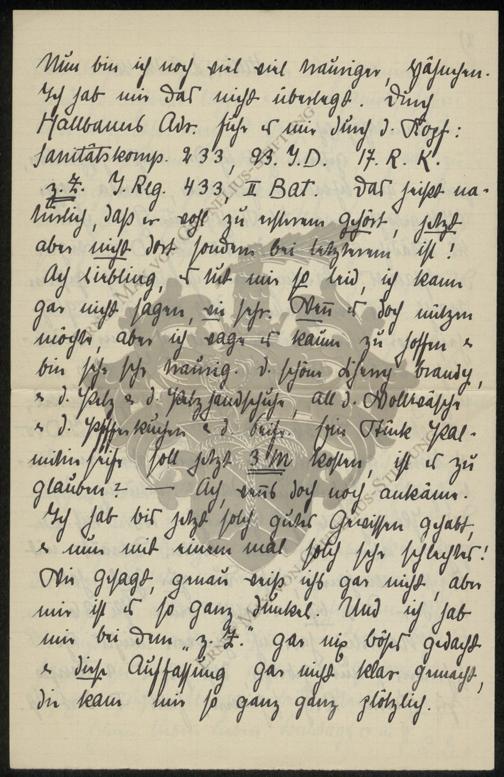 Nun bin ich noch viel viel trauriger, Hähnchen.
Ich hab mir das nicht überlegt. Durch
Hallbauers Adr. fuhr es mir durch d. Kopf:
Sanitätskomp. 233, 93. I.D. 17. R. K.
z. Z. I. Reg. 433 II Bat. Das heißt na-
türlich, daß er wohl zu ersterem gehört, jetzt
aber nicht dort sondern bei letzterem ist!
Ach Liebling, es tut mir so leid, ich kann
gar nicht sagen, wie sehr. Wenn es doch nützen
möchte, aber ich wage es kaum zu hoffen &
bin sehr sehr traurig. d. schöne Cherry brandy,
& d. Pelz & d. Pelzhandschuhe, all d. Wollwäsche
& d. Pfefferkuchen & d. Seife. Ein Stück Pal-
mitinseife soll jetzt 3 M kosten, ist es zu
glauben? — Ach, wenns doch noch ankäme.
Ich hab bis jetzt solch gutes Gewissen gehabt,
& nun mit einem mal solch sehr schlechtes!
Wie gesagt, genau weiß ichs gar nicht, aber
mir ist es so ganz dunkel. Und ich hab
mir bei dem „z. Z." gar nix böses gedacht
& diese Auffassung gar nicht klar gemacht,
die kam mir so ganz ganz plötzlich.